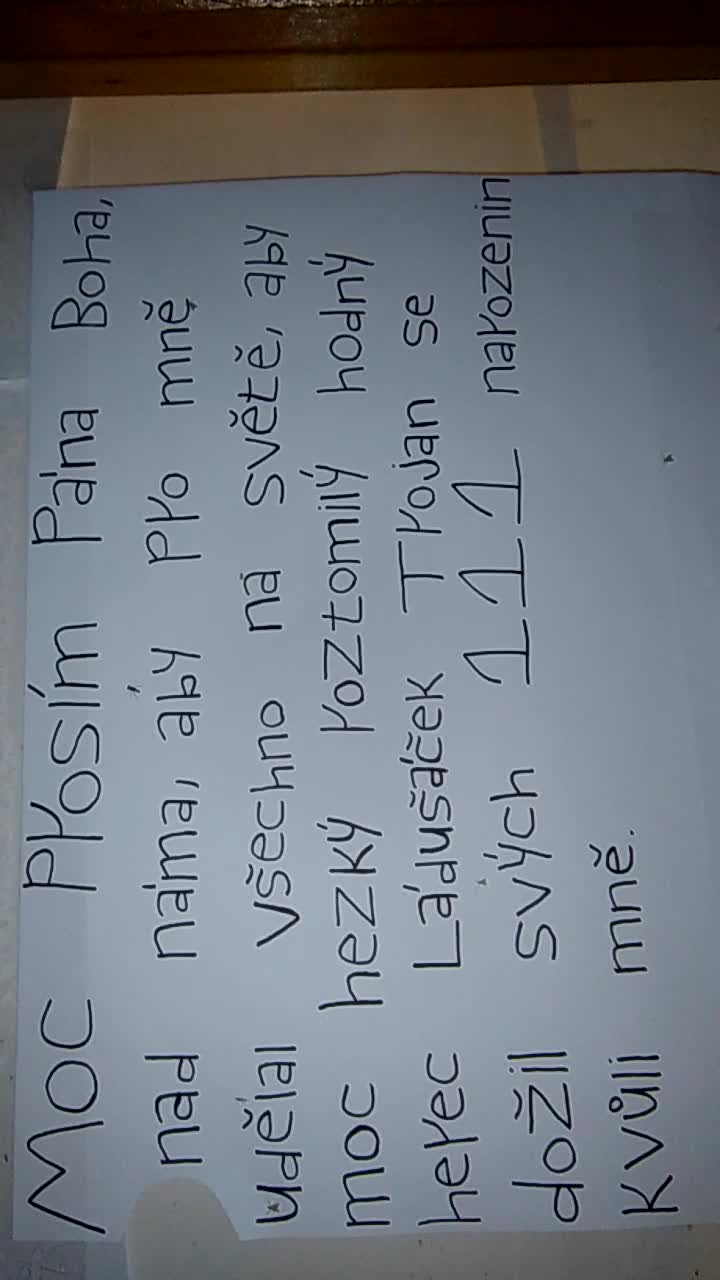 Moc prosím Pána Boha,
nad náma, aby pro mně
udělal všechno na světě, aby
moc hezký roztomilý hodný
herec Ládušáček Trojan se
dožil svých 111 narozenin
kvůli mně.